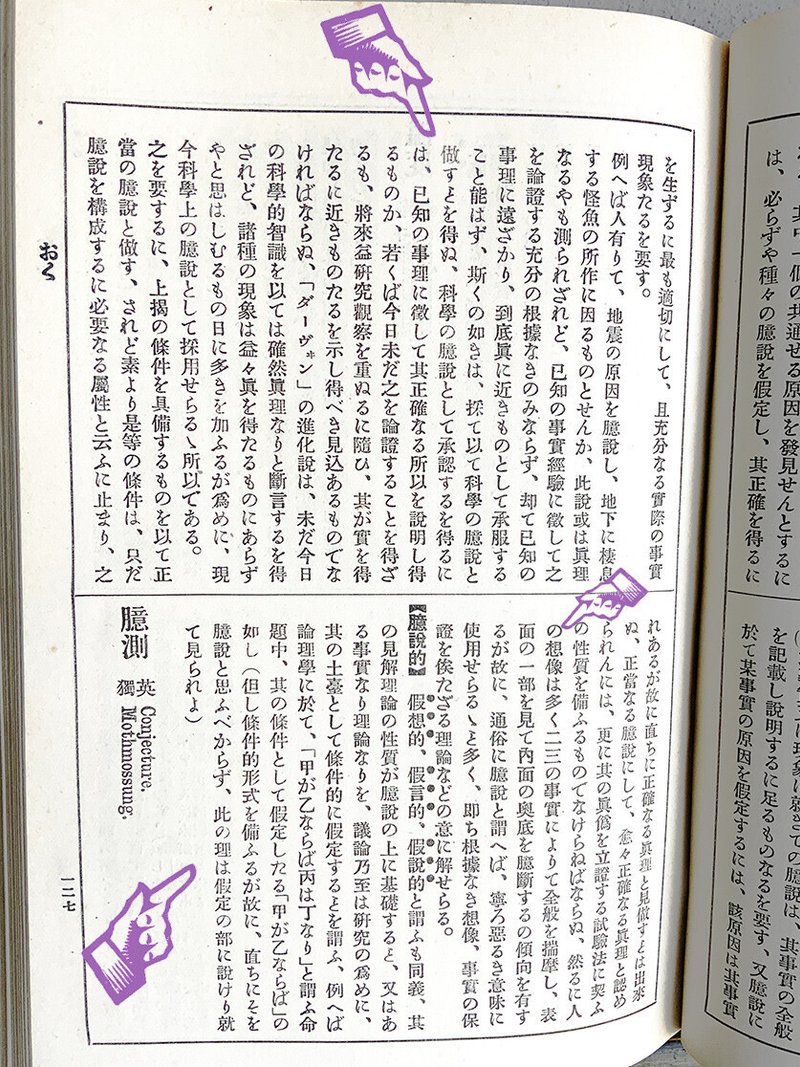 其中一個の共通せる原因を發見せんとするに
は、必らずや種々の臆說を假定し、其正確を得るに
現象に就きての臆說は、其事實の全般
を記載し說明するに足るものなるを要す、又臆說に
於て某事實の原因を假定するには、該原因は其事實
を生ずるに最も適切にして、且充分なる實際の事實
現象たるを要す。
例へば人有りて、地震の原因を臆說し、地下に棲息
する怪魚の所作に因るものとせんか、此說或は眞理
なるやも測られざれど、已知の事實經驗に徵して之
を論證する充分の根據なきのみならず、却て已知の
事理に遠ざかり、到底眞に近きものとして承服する
こと能はず、斯くの如きは、採て以て科學の臆說と
做すヿを得ぬ、科學の臆說として承認するを得るに
は、已知の事理に徵して其正確なる所以を說明し得
るものか、若くば今日未だ之を論證することを得ざ
るも、將來益硏究觀察を重ぬるに隨ひ、其が實を得
たるに近きものたるを示し得べき見込あるものでな
ければならぬ、「ダーヴヰン」の進化說は、未だ今日
の科學的智識を以ては確然眞理なりと斷言するを得
ざれど、諸種の現象は益々眞を得たるものにあらず
やと思はしむるもの日に多きを加ふるが爲めに、現
今科學上の臆說として採用せらるゝ所以である。
之を要するに、上揭の條件を具備するものを以て正
當の臆說と做す、されど素より是等の條件は、只だ
臆說を構成するに必要なる屬性と云ふに止まり、之
れあるが故に直ちに正確なる眞理と見做すヿは出來
ぬ、正當なる臆說にして、愈々正確なる眞理と認め
られんには、更に其の眞僞を立證する試驗法に契ふ
の性質を備ふるものでなけらねばならぬ、然るに人
の想像は多く二三の事實によりて全般を揣摩し、表
面の一部を見て內面の奧底を臆斷するの傾向を有す
るが故に、通俗に臆說と謂へば、寧ろ惡るき意味に
使用せらるゝヿ多く、卽ち根據なき想像、事實の保
證を俟たざる理論などの意に解せらる。
【臆說的】 假想的、假言的、假說的と謂ふも同義、其
の見解理論の性質が臆說の上に基礎するヿ、又はあ
る事實なり理論なりを、議論乃至は硏究の爲めに、
其の土臺として條件的に假定するヿを謂ふ、例へば
論理學に於て、「甲が乙ならば丙は丁なり」と謂ふ命
題中、其の條件として假定したる「甲が乙ならば」の
如し（但し條件的形式を備ふるが故に、直ちにそを
臆說と思ふべからず、此の理は假定の部に說けり就
て見られよ）
臆測 英 Conjecture.
獨 Mothmossung.
おく
一二七